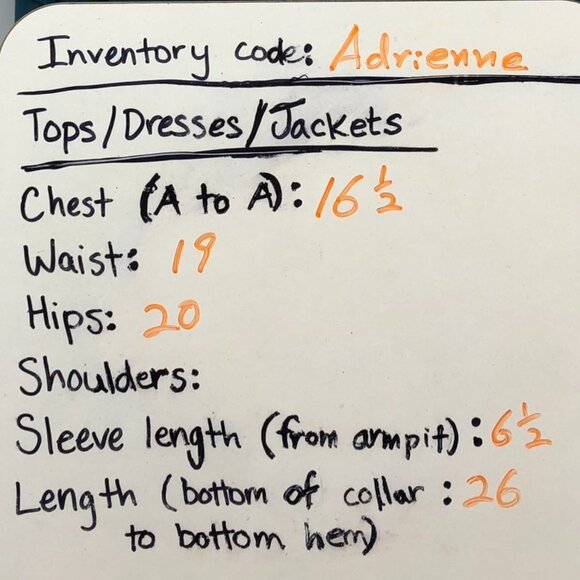 Inventory code: Adrienne
Tops/Dresses/Jackets
Chest (A to A): 16 ½
Waist: 19
Hips: 20
Shoulders:
Sleeve length (from armpit): 6 ½
Length (bottom of collar : 26
to bottom hem)